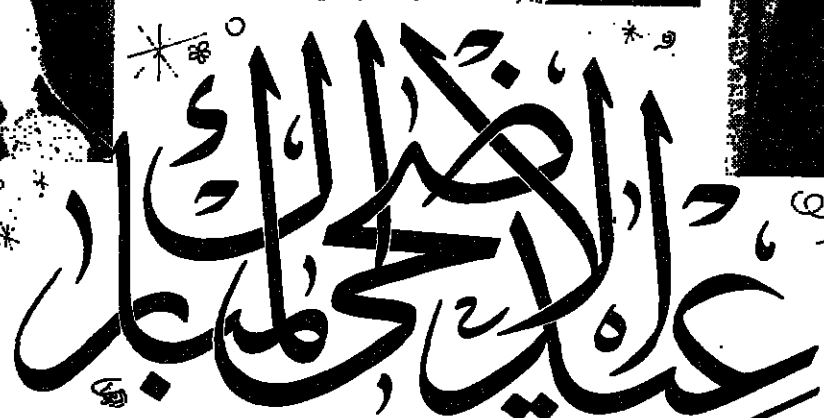 عيد الاضحى المبارك